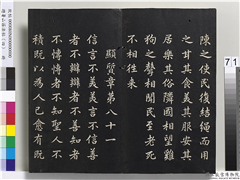 陳之使民復結繩而用
之甘其食美其服安其
居樂其俗隣國相望雞
狗之聲相聞民至老死
不相往来
顯質章第八十一
信言不美美言不信善
者不辯辯者不善知者
不博博者不知聖人不
積既以為人己愈有既
71